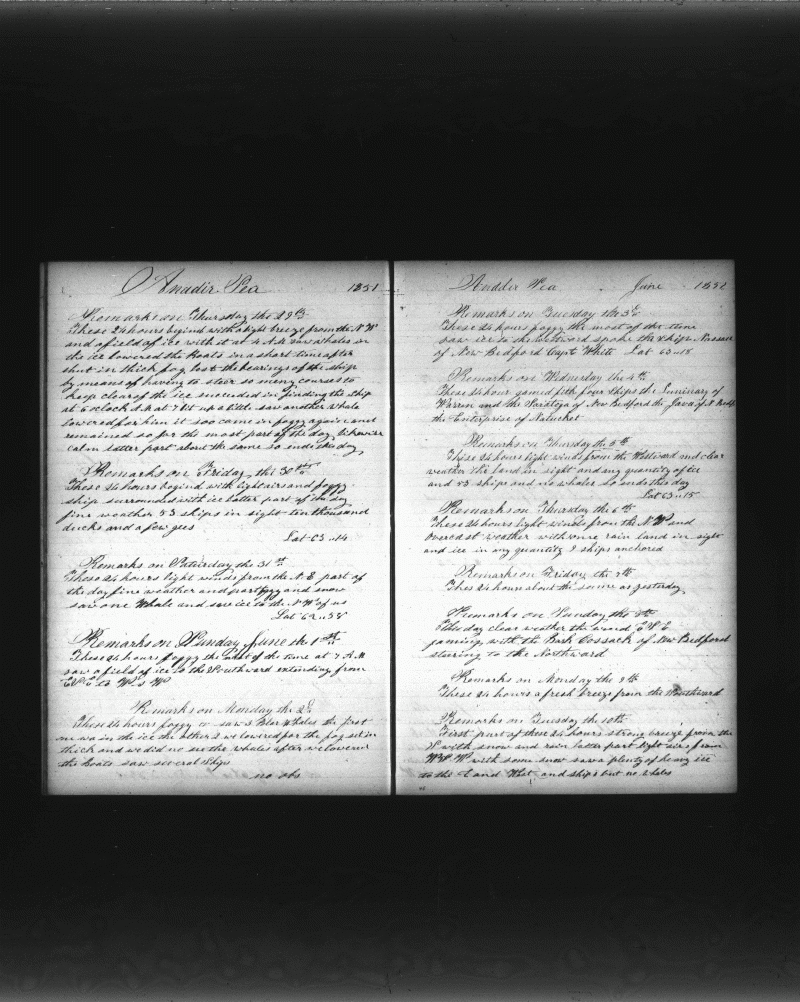 Anadir Sea 1851
Remarks on Thursday the 29th
These 24 hours begind with a light breeze from the N W
and a field of ice with it at 4 A.M. saw whales in
the ice lowered the boats in a short time after
shut in thick fog lost the bearings of the ship
by means of having to steer so meny courses to
keep clear of the ice succeded in finding the ship
at 6 oclock A.M at 7 lit up a little saw another whale
lowered for him it soo came in foggy again and
remained so for the most part of the day likewise
calm latter part about the same so ends the day
Remarks on Friday the 30th
These 24 hours begind with light airs and foggy
ship surrounded with ice latter part of the day
fine weather 53 ships in sight ten thousand
ducks and a few gees
Lat 63 - 14
Remarks on Saturday the 31st
These 24 hours light winds from the N.E part of
the day fine weather and part foggy and snow
saw one Whale and saw ice to the N W of us
Lat 62 - 58
Remarks on Sunday June the 1st
These 24 hours foggy the most of the time at 7 A.M
saw a field of ice to the Southward extending from
to
Remarks on Monday the 2d
These 24 hours foggy saw 3 Whales the first
one was in the ice the other 2 we lowered for the fog set in
thick and we did no see the whales after we lowered
the boats saw several ships
no obs
Andder Sea June 1851
Remarks on Tuesday the 3d
These 24 hours foggy the most of the time
saw ice to the westward spoke the ship Nassau
of New Bedford Capt White Lat 63 - 18
Remarks on Wednesday the 4th
These 24 hours gamed with four ships the Luminary of
Warren and the Saratoga of New Bedford the Java of N Bedfo
the Enterprise of Natucket
Remarks on Thursday the 5th
These 24 hours light winds from the Westward and clear
weather the land in sight and any quantity of ice
and 53 ships and no whales so ends this day
Lat 63 - 15
Remarks on Thursday the 6th
These 24 hours light winds from the N.W and
overcast weather with some rain land in sight
and ice in any quantity 8 ships anchored
Remarks on Friday the 7th
Thes 24 hours about the same as yesterday
Remarks on Sunday the 8th
This day clear weather the wind
gaming with the Bark Cossack of New Bedford
steering to the Northward
Remarks on Monday the 9th
These 24 hours a fresh breeze from the Southward
Remarks on Tuesday the 10th
First part of these 24 hours strong breeze from the
S with snow and rain latter part light airs from
W.S.W with some snow saw a plenty of heavy ice
to the E and West and ships but no whales